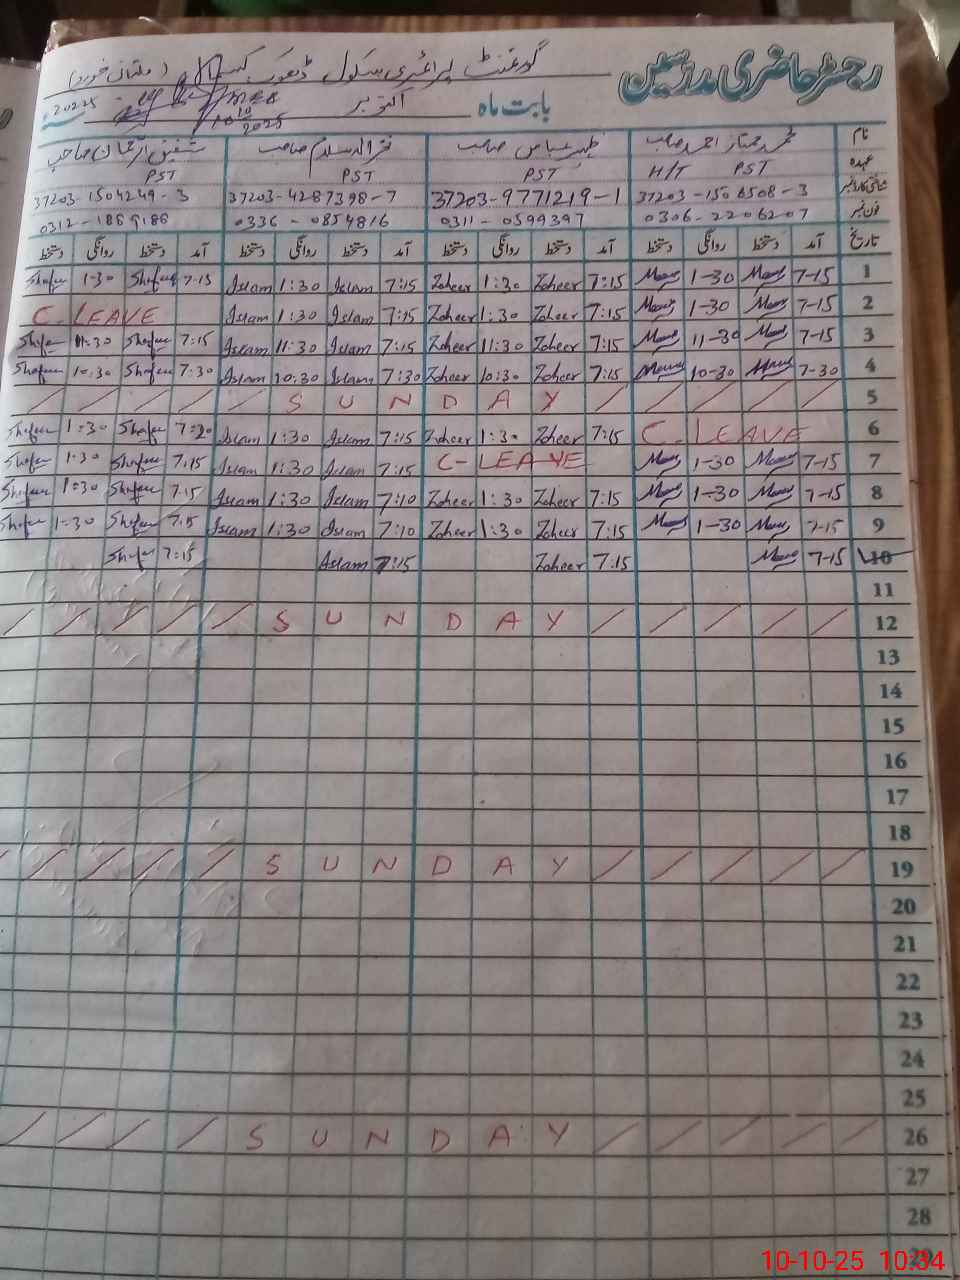 رجسٹر حاضری مدرسین
گورنمنٹ پرائمری سکول ڈھوک (ملتان خورد)
بابت ماہ اکتوبر 2025
10/10/2025
نام محمد ممتاز احمد صاحب ظہیر عباس صاحب قمر السلام صاحب شفیق الرحمان صاحب
عہدہ H/T PST PST PST PST
شناختی کارڈ نمبر 37203-1508508-3 37203-9771219-1 37203-4287398-7 37203-1504249-3
فون نمبر 0306-2206207 0311-0599397 0336-0854816 0312-1869186
تاریخ آمد دستخط روانگی دستخط آمد دستخط روانگی دستخط آمد دستخط روانگی دستخط آمد دستخط روانگی دستخط
Shafee 1-30 Shafee 7-15 Islam 1:30 Islam 7:15 Zaheer 1:30 Zaheer 7:15 1-30 7-15 1
C. LEAVE Islam 1:30 Islam 7:15 Zaheer 1:30 Zaheer 7:15 1-30 7-15 2
Shafee 11:30 Shafee 7:15 Islam 11:30 Islam 7:15 Zaheer 11:30 Zaheer 7:15 11-30 7-15 3
Shafee 10:30 Shafee 7:30 Islam 10:30 Islam 7:30 Zaheer 10:30 Zaheer 7:15 10-30 7-30 4
S U N D A Y 5
Shafee 1:30 Shafee 7:20 Islam 1:30 Islam 7:15 Zaheer 1:30 Zaheer 7:15 C. LEAVE 6
Shafee 1:30 Shafee 7:15 Islam 1:30 Islam 7:15 C-LEAVE 1-30 7-15 7
Shafee 1:30 Shafee 7.15 Islam 1:30 Islam 7:10 Zaheer 1:30 Zaheer 7:15 1-30 7-15 8
Shafee 1:30 Shafee 7:15 Islam 1:30 Islam 7:10 Zaheer 1:30 Zaheer 7:15 1-30 7-15 9
Shafee 7:15 Islam 7:15 Zaheer 7:15 7-15 10
11
S U N D A Y 12
13
14
15
16
17
18
S U N D A Y 19
20
21
22
23
24
25
S U N D A Y 26
27
28
29
10-10-25 10:34